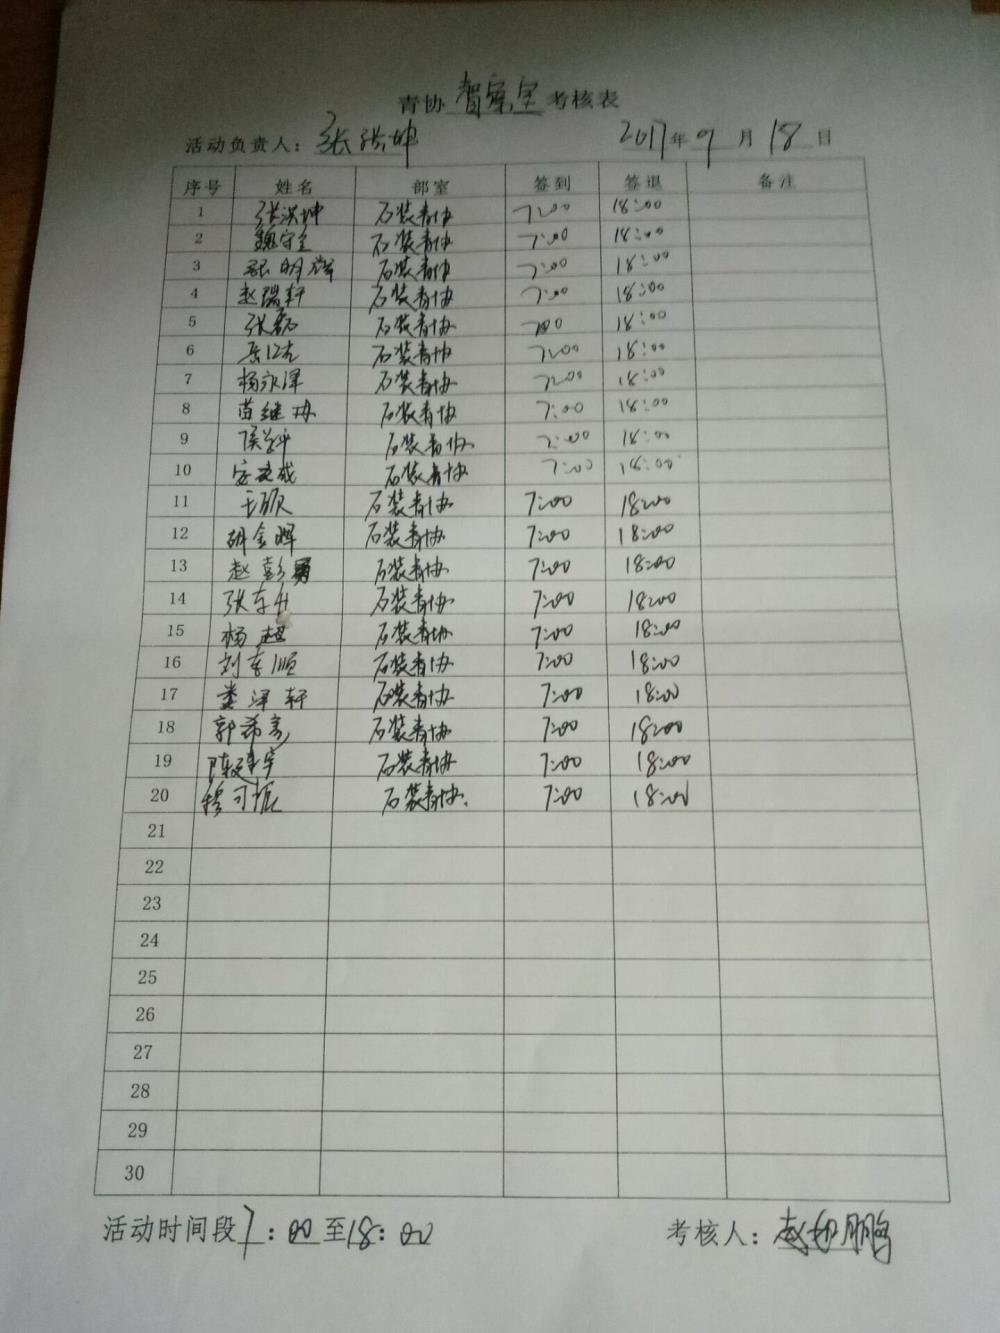 青协 督察室 考核表
活动负责人：张洪坤 2017年9月18日
序号 姓名 部室 签到 签退 备注
1 张洪坤 石装青协 7:00 18:00
2 魏守全 石装青协 7:00 18:00
3 张明辉 石装青协 7:00 18:00
4 赵瑞轩 石装青协 7:00 18:00
5 张磊 石装青协 7:00 18:00
6 石装青协 7:00 18:00
7 杨永泽 石装青协 7:00 18:00
8 苗继 石装青协 7:00 18:00
9 石装青协 7:00 18:00
10 石装青协 7:00 18:00
11 王硕 石装青协 7:00 18:00
12 胡金晖 石装青协 7:00 18:00
13 赵彭勇 石装青协 7:00 18:00
14 张东升 石装青协 7:00 18:00
15 杨超 石装青协 7:00 18:00
16 刘东顺 石装青协 7:00 18:00
17 娄泽轩 石装青协 7:00 18:00
18 郭希彦 石装青协 7:00 18:00
19 陈建宇 石装青协 7:00 18:00
20 穆可振 石装青协 7:00 18:00
21
22
23
24
25
26
27
28
29
30
活动时间段7：00至18：00 考核人：赵如鹏